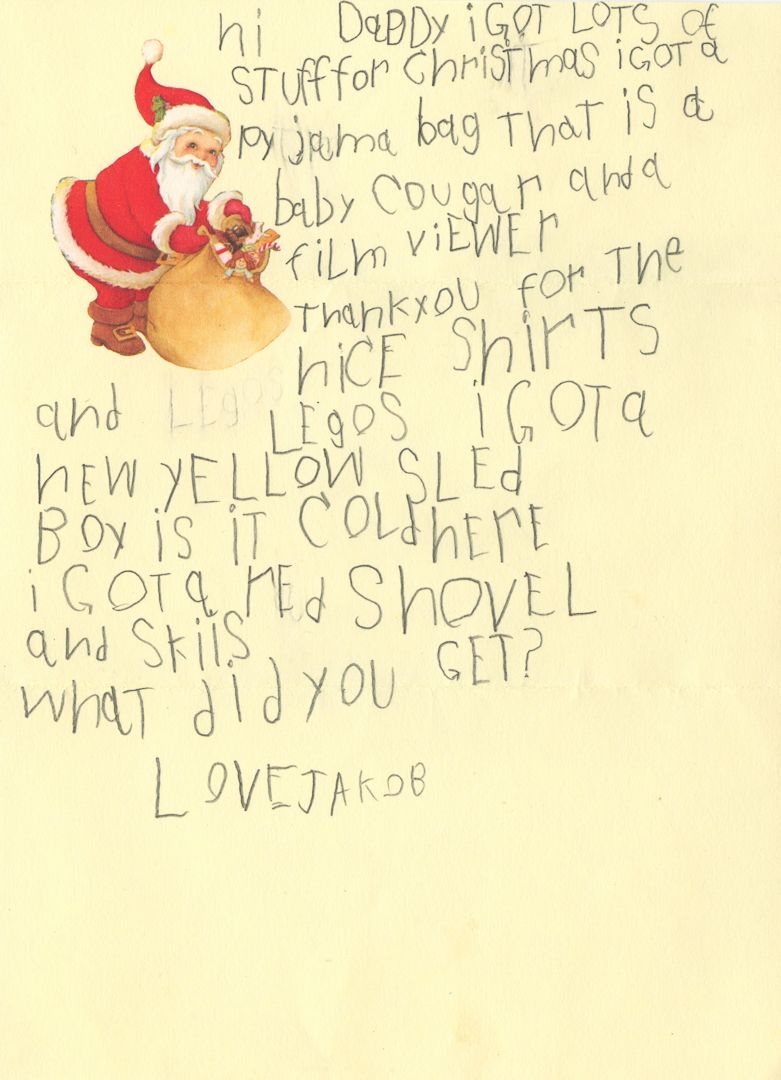 hi DaDDy iGOT LOTS of
STUff for ChriSTmas iGOT a
pyjama bag ThaT iS a
baby COugar and a
fiLm ViEWEr
Thankyou for The
hiCE ShirTS
and LEgOS iGOT a
hEW YELLOW SLEd
BOy iS iT COLd hErE
i GOT a rEd ShOVEL
and SkiiS
whaT did yOU GET?
LOVE JAKOB